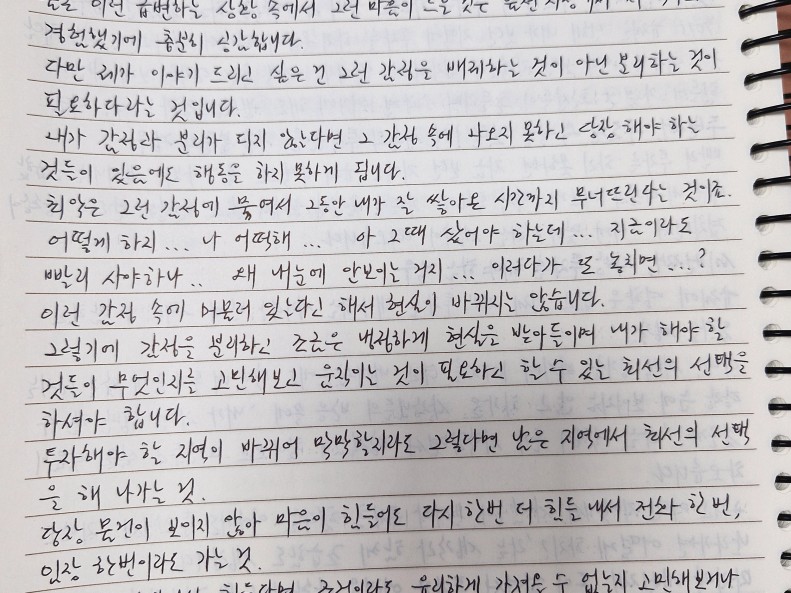 또한 이런 급변하는 상황 속에서 그런 마음이
경험했기에 충분히 실감합니다.
다만 제가 이야기 드리고 싶은 건 그런 감정을 배제하는 것이 아닌 분리하는 것이
필요하다라는 것입니다.
내가 감정과 분리가 되지 않는다면 그 감정 속에 나오지 못하고 당장 해야 하는
것들이 있음에도 행동을 하지 못하게 됩니다.
최악은 그런 감정에 묶여서 그동안 내가 잘 쌓아온 시간까지 무너뜨린다는 것이죠.
어떻게 하지... 나 어떡해... 아 그때 샀어야 하는데... 지금이라도
빨리 사야하나.. 왜 내눈에 안보이는 거지... 이러다가 또 놓치면...?
이런 감정 속에 머물러 있는다고 해서 현실이 바뀌지는 않습니다.
그렇기에 감정을 분리하고 조금은 냉정하게 현실을 받아들이며 내가 해야 할
것들이 무엇인지를 고민해보고 움직이는 것이 필요하고 할 수 있는 최선의 선택을
하셔야 합니다.
투자해야 할 지역이 바뀌어 막막할지라도 그렇다면 남은 지역에서 최선의 선택
을 해 나가는 것.
당장 물건이 보이지 않아 마음이 힘들어도 다시 한번 더 힘들 내서 전화 한 번,
임장 한번이라도 가는 것.
힘들다면 조건이라도 유리하게 가져올 수 없는지 고민해보거나